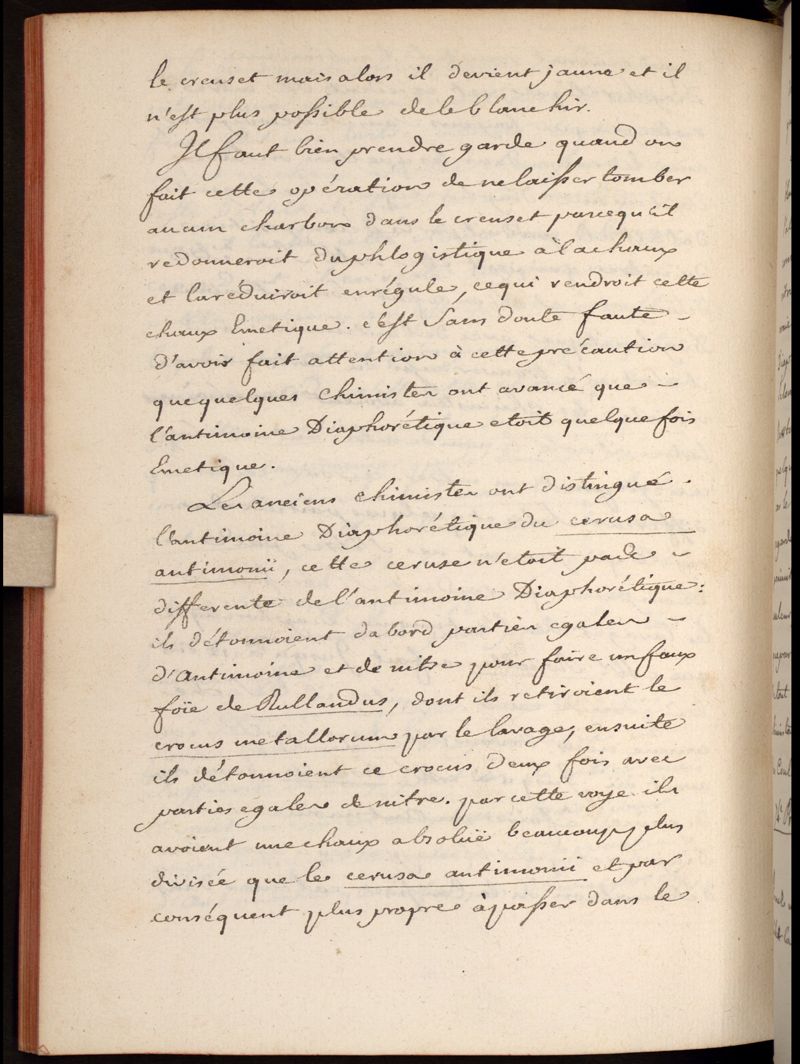 le creuset mais alors il devient jaune et il
n'est plus possible de le blanchir.
Il faut bien prendre garde quand on
fait cette opération de ne laisser tomber
aucun charbon dans le creuset parcequ'il
redonneroit du phlogistique à la chaux
et la réduiroit en régule, ce qui rendroit cette
chaux Emetique. c'est sans doute faute
d'avoir fait attention à cette précaution
que quelques chimistes ont avancé que
l'antimoine Diaphorétique etoit quelque fois
Emetique.
Les anciens chimistes ont distingué
l'antimoine Diaphorétique du cerusa
antimonii, cette ceruse n'etoit pas
differente de l'antimoine Diaphorétique:
ils détonnoient dabord parties egales
d'Antimoine et de nitre pour faire un faux
foïe de Rullandus, dont ils retiroient le
crocus metallorum par le lavage, ensuite
ils détonnoient ce crocus deux fois avec
parties egales de nitre. par cette voye ils
avoient une chaux absoluë beaucoup plus
divisée que le cerusa antimonii et par
conséquent plus propre à passer dans le